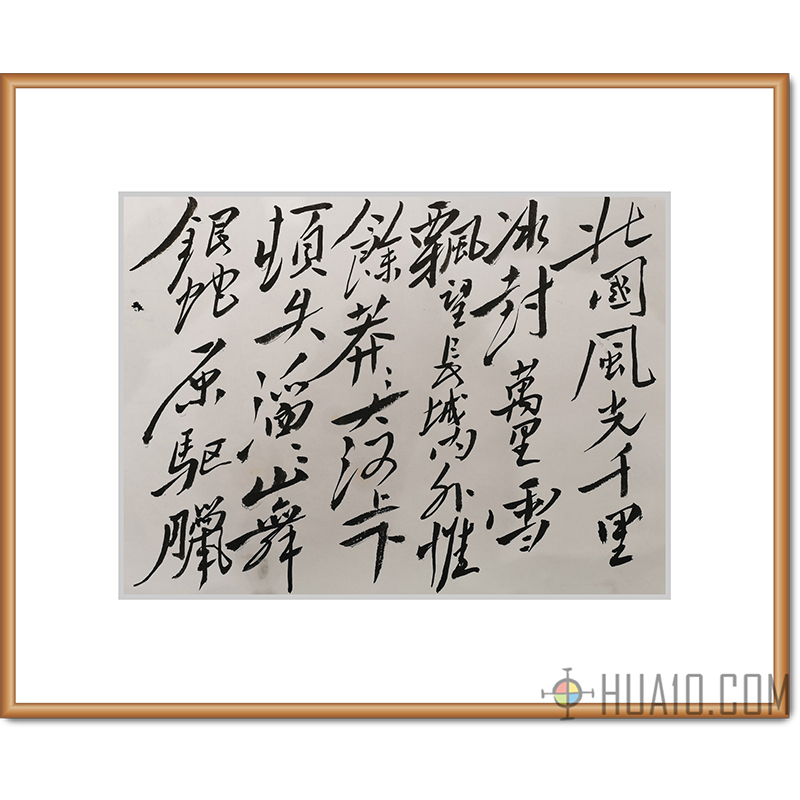 北國風光千里
冰封萬里雪
飄望長城內外惟
餘莽〻大河上下
頓失滔〻山舞
銀蛇原驱臘
HUA10.COM